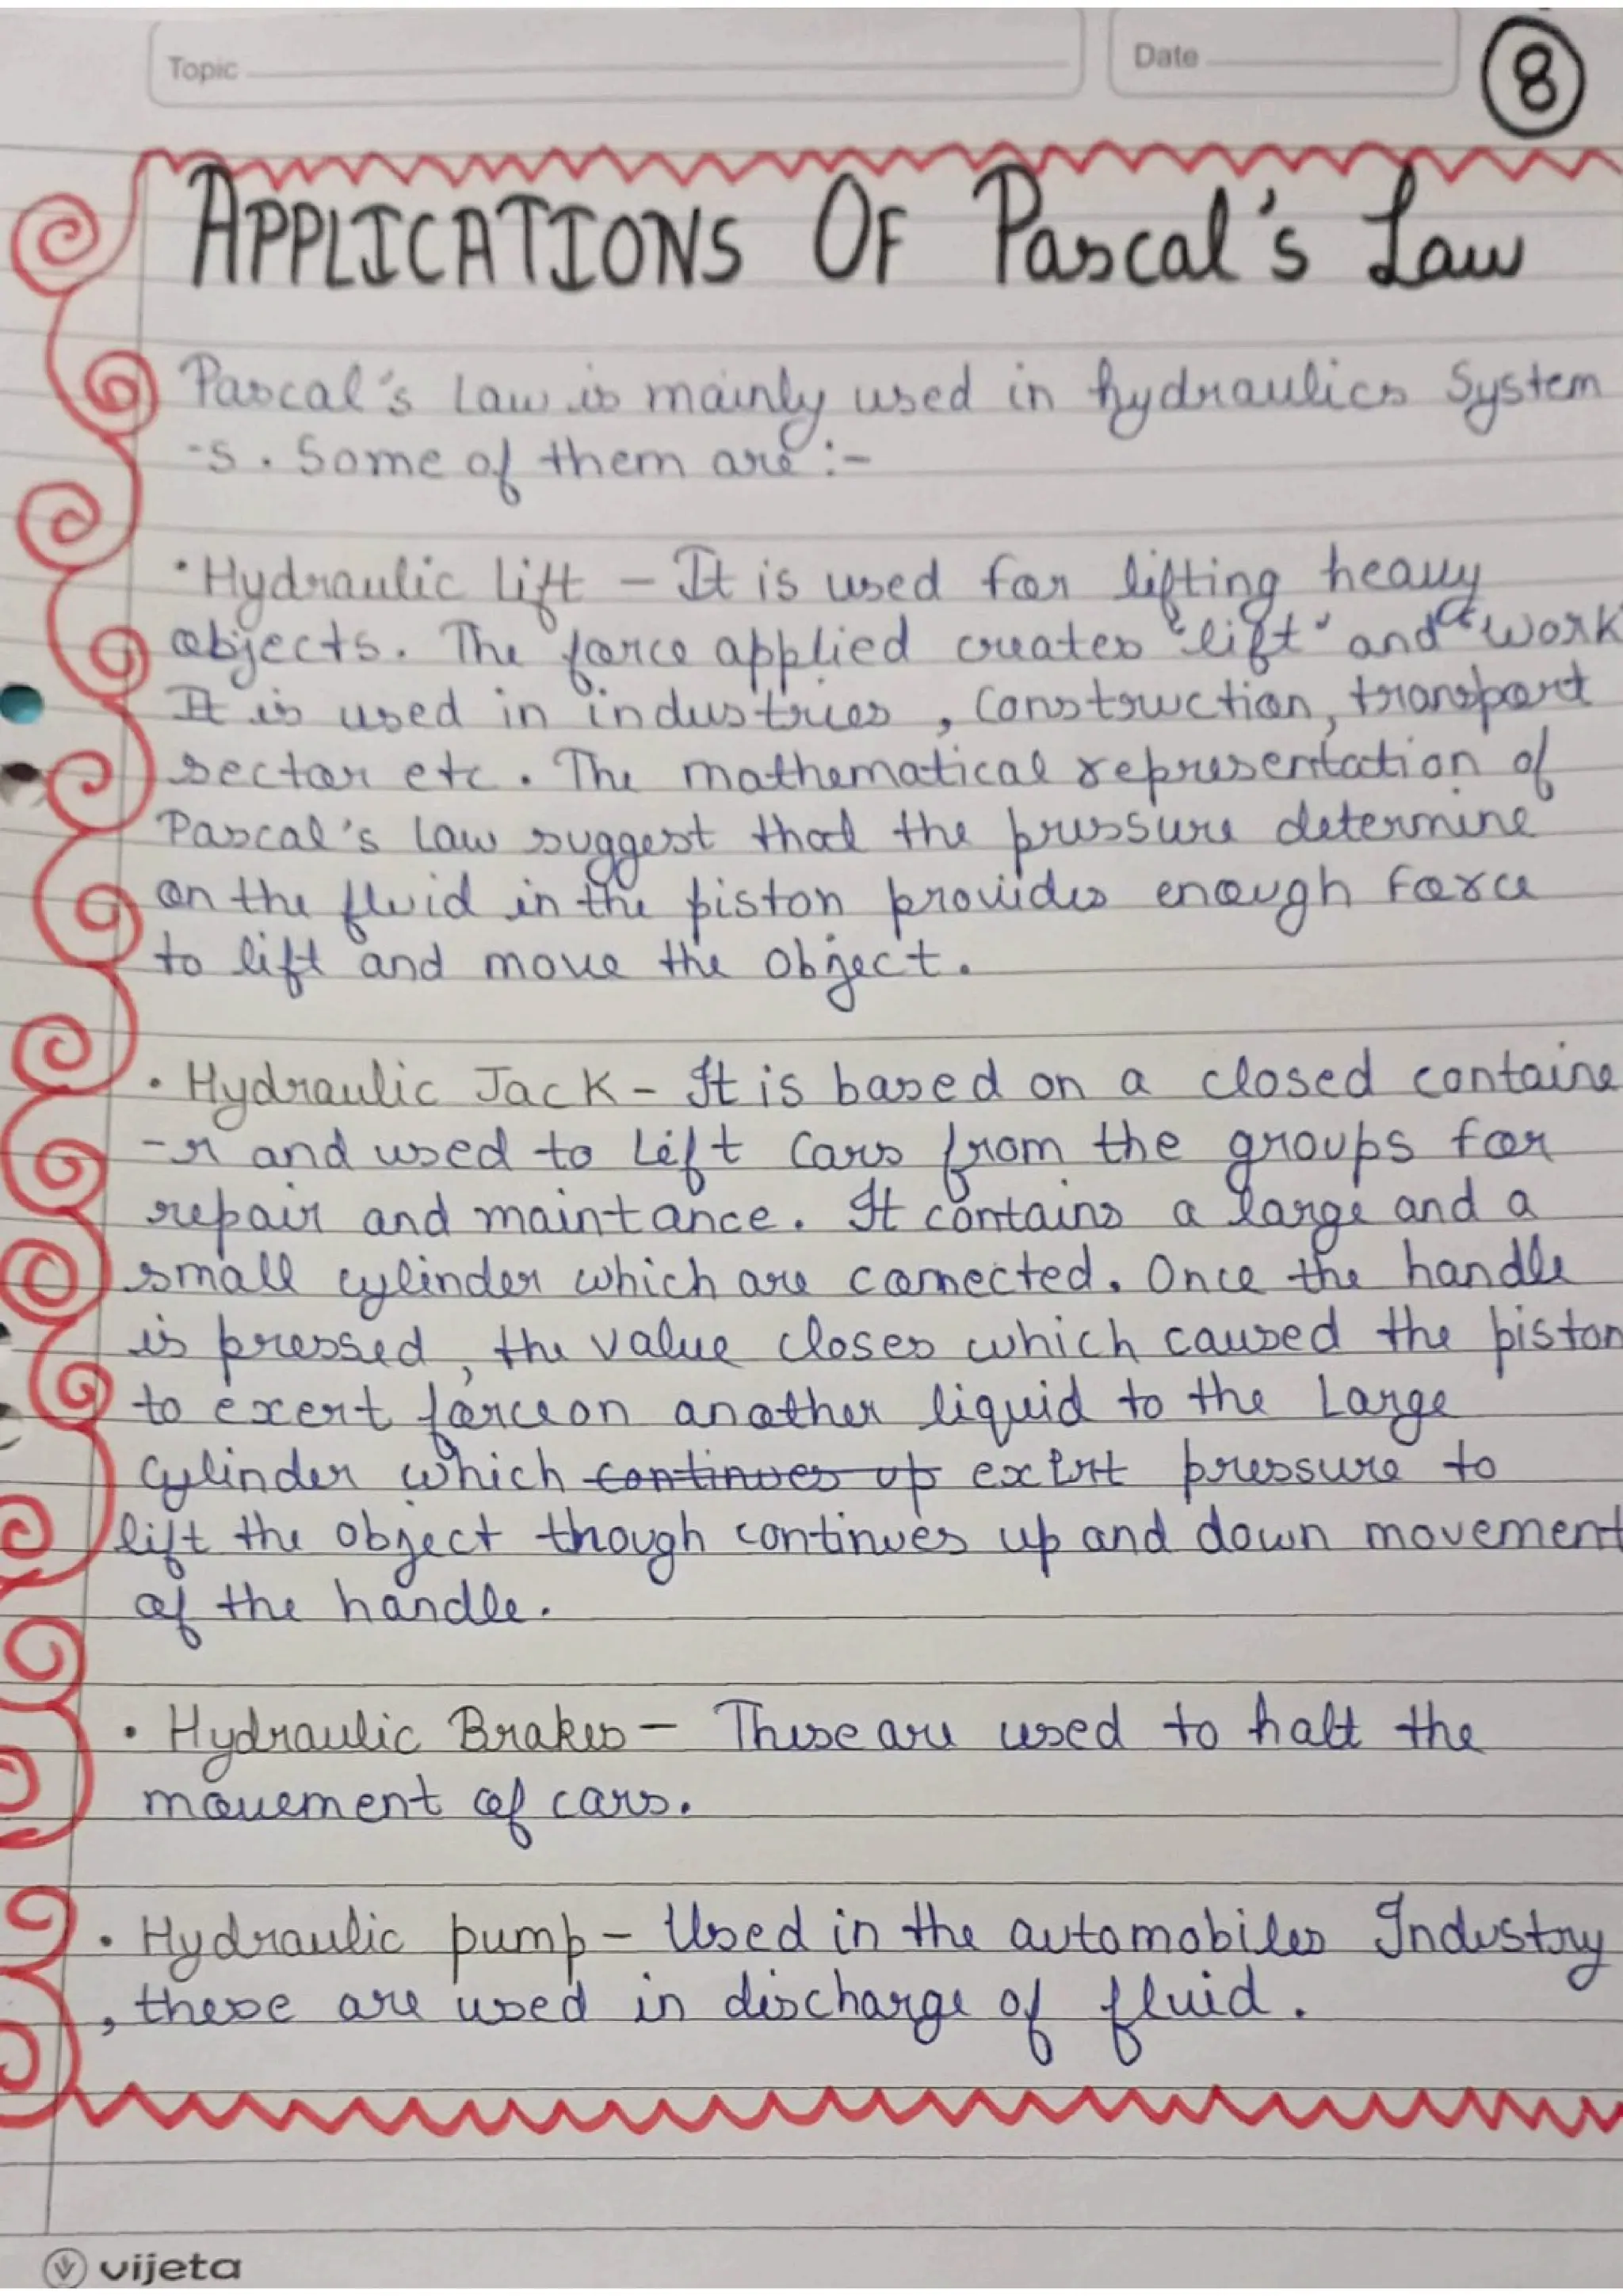 Topic
Date
8
APPLICATIONS OF Pascal's Law
Pascal's Law is mainly used in hydraulics System
-s. Some of them are :-
• Hydraulic Lift - It is used for lifting heavy
objects. The force applied creates "lift" and "work
It is used in industries, Construction, transport
sector etc. The mathematical representation of
Pascal's Law suggest that the pressure determine
on the fluid in the piston provides enough force
to lift and move the object.
• Hydraulic Jack - It is based on a closed containe
-r and used to Lift Cars from the groups for
repair and maintance. It contains a large and a
small cylinder which are connected. Once the handle
is pressed, the value closes which caused the piston
to exert force on another liquid to the Large
Cylinder which continues up exert pressure to
lift the object though continues up and down movement
of the handle.
• Hydraulic Brakes - These are used to halt the
movement of cars.
• Hydraulic pump - Used in the automobiles Industry
, these are used in discharge of fluid.
vijeta